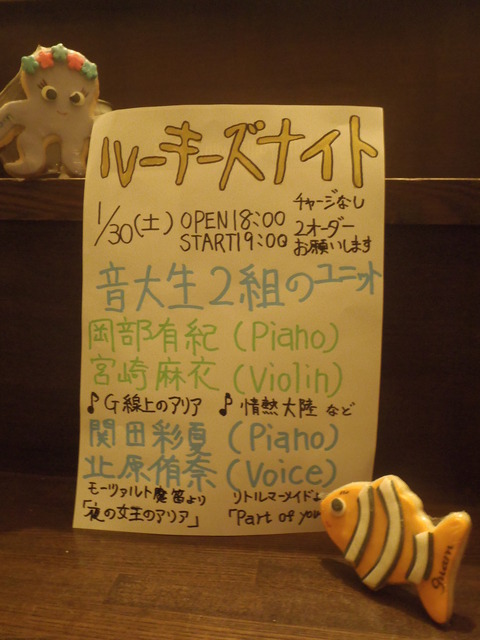 ルーキーズナイト
1/30(土) OPEN18:00 チャージなし
START19:00 2オーダー
お願いします
音大生2組のユニット
岡部有紀(Piano)
宮崎麻衣(Violin)
♪G線上のアリア ♪情熱大陸 など
関田彩夏(Piano)
北原侑奈(Voice)
モーツァルト魔笛より リトルマーメイドよ
「夜の女王のアリア」 「Part of you